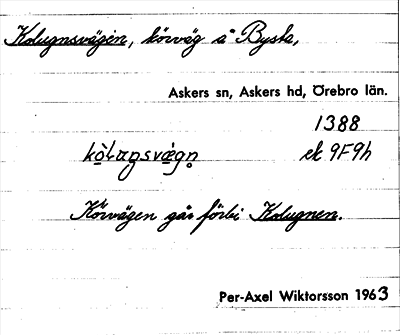 Kolugnsvägen, körväg å Bysta,
Askers sn, Askers hd, Örebro län.
1388
kòlaŋsvæ̀gn̥ ek 9F9h
Körvägen går förbi Kolugnen.
Per-Axel Wiktorsson 1963